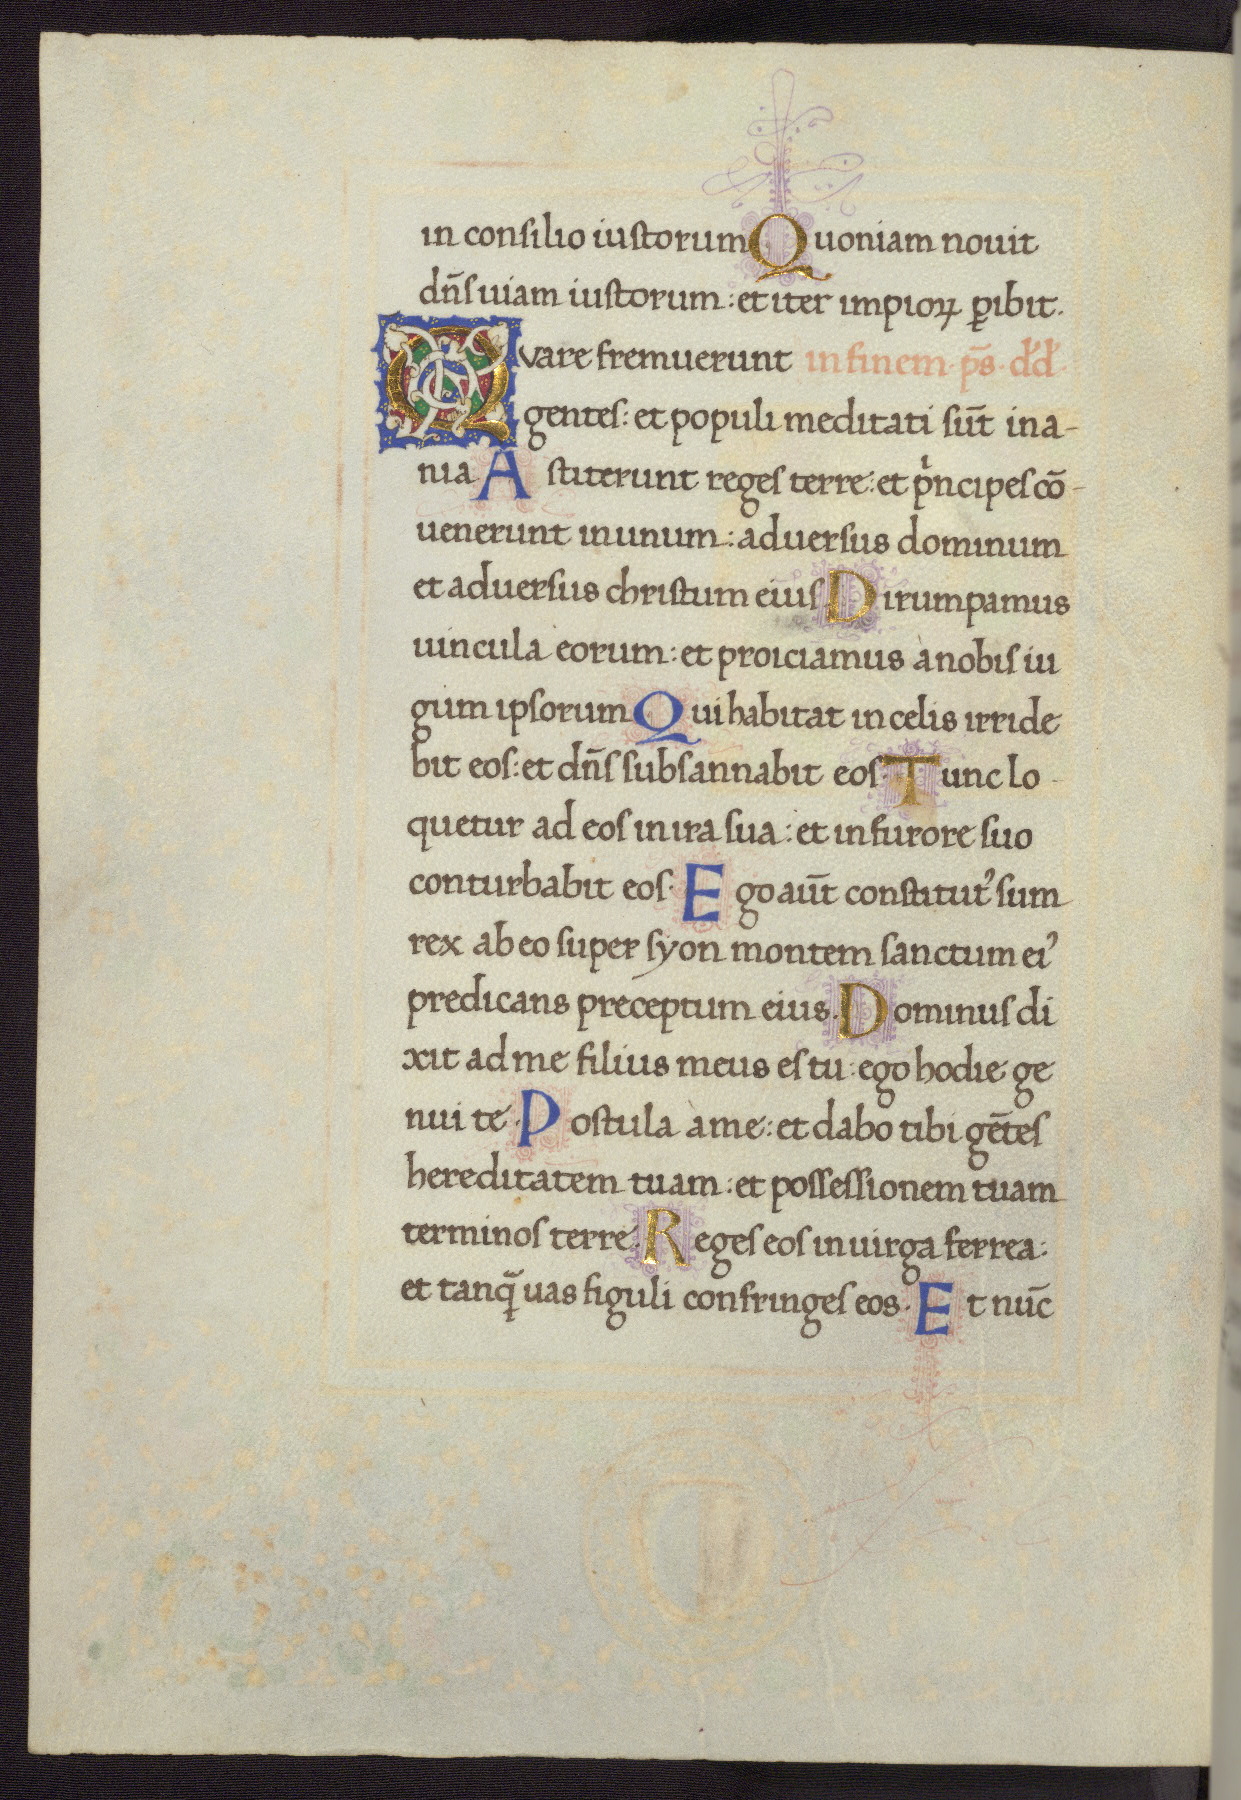 in consilio iustorum Quoniam nouit
dn̄s uiam iustorum: et iter impioꝝ ꝑibit.
Qvare fremuerunt in finem p̄s. dd̛
gentes: et populi meditati sūt ina-
nia. Astiterunt reges terre: et pͥncipes cō-
uenerunt in unum: aduersus dominum
et aduersus christum eius Dirumpamus
uincula eorum: et proiciamus à nobis iu
gum ipsorum Qui habitat in celis irride
bit eos: et dn̄s subsannabit eos. Tunc lo
quetur ad eos in ira sua: et in furore suo
conturbabit eos. Ego aūt constitutꝰ sum
rex ab eo super syon montem sanctum eiꝰ
predicans preceptum eius. Dominus di
xit ad me filius meus es tu: ego hodie ge
nui te. Postula à me: et dabo tibi gētes
hereditatem tuam: et possessionem tuam
terminos terre. Reges eos in uirga ferrea:
et tanq̄ uas figuli confringes eos. Et nūc